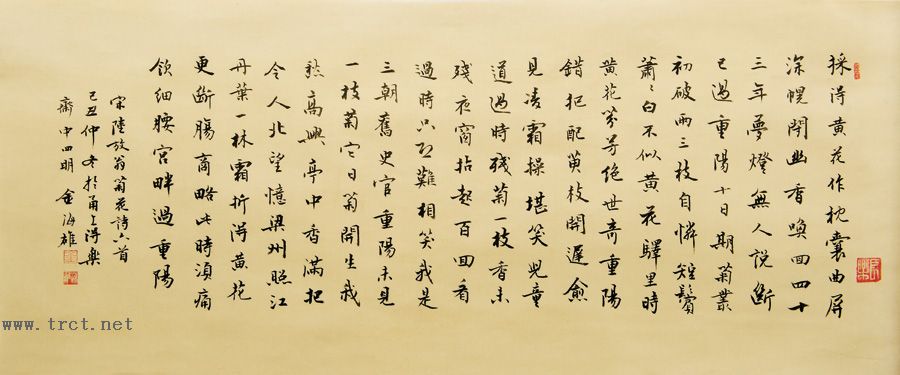 採得黄花作枕囊曲屏
深幌閉幽香喚回四十
三年夢燈無人說斷
已過重陽十日期菊叢
初破兩三枝自憐短鬢
蕭〻白不似黄花驛里時
黄花芬芳絕世奇重陽
錯把配萸枝開遲愈
見凌霜操堪笑兒童
道過時殘菊一枝香未
殘夜窗拈起百回看
過時只恐難相笑我是
三朝舊史官重陽未見
一枝菊它日菊開生我
愁高興亭中香滿把
令人北望憶梁州照江
丹葉一林霜折得黄花
更斷腸商略此時須痛
飲細腰宮畔過重陽
宋陸放翁菊花詩六首
己丑仲冬於甬上得樂
齋中四明金海雄
www.trct.net